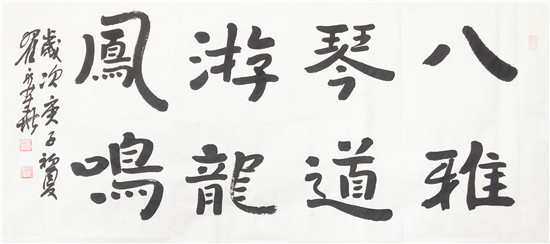 八雅
琴道
游龍
鳳鳴
歲次庚子初夏